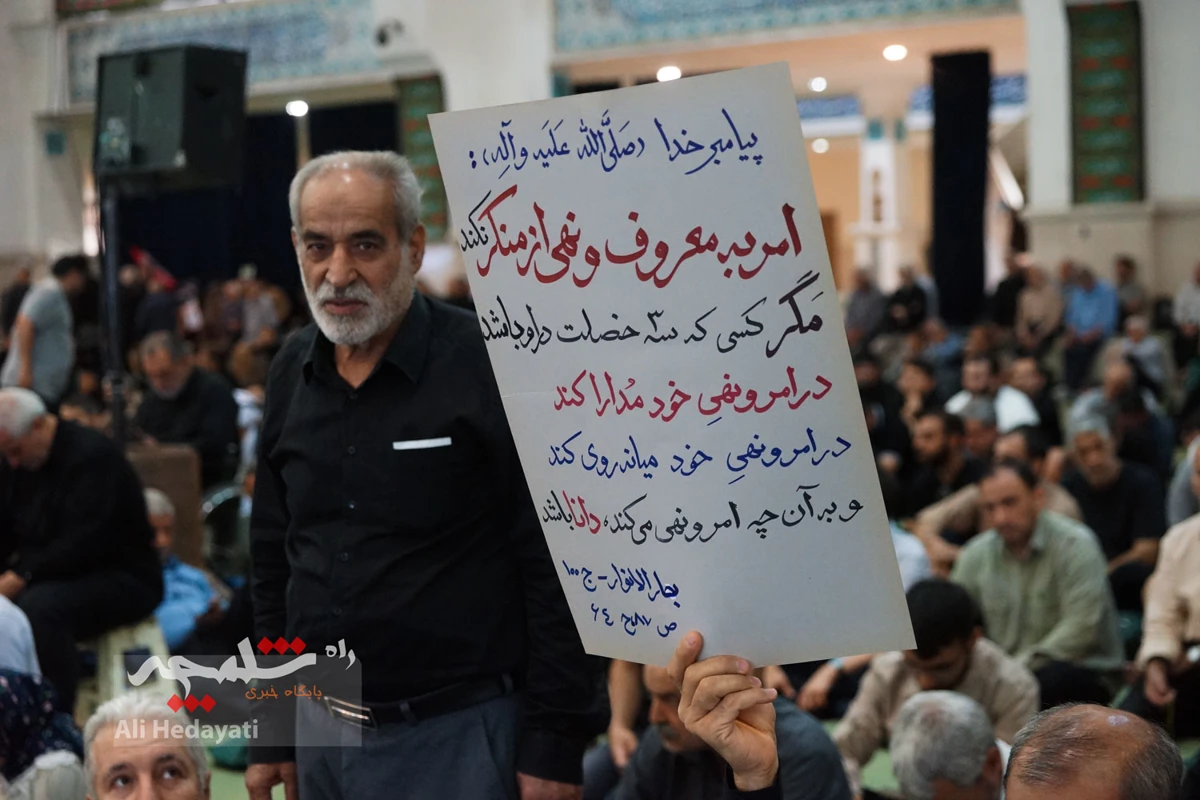 پیامبر خدا (صَلَّی‌اللّٰه عَلَیه وآلِه) :
امر به معروف و نهی از منکر نکند
مَگر کَسی که سه خصلت در او باشد
در امر و نهیِ خود مُدارا کند
در امر و نهیِ خود میانه‌روی کند
و به آن چه امر و نهی می‌کند، دانا باشد
بحارالانوار - ج ۱۰۰
ص ۸۷ ح ۶۴
راه شلمچه
پایگاه خبری
Ali Hedayati